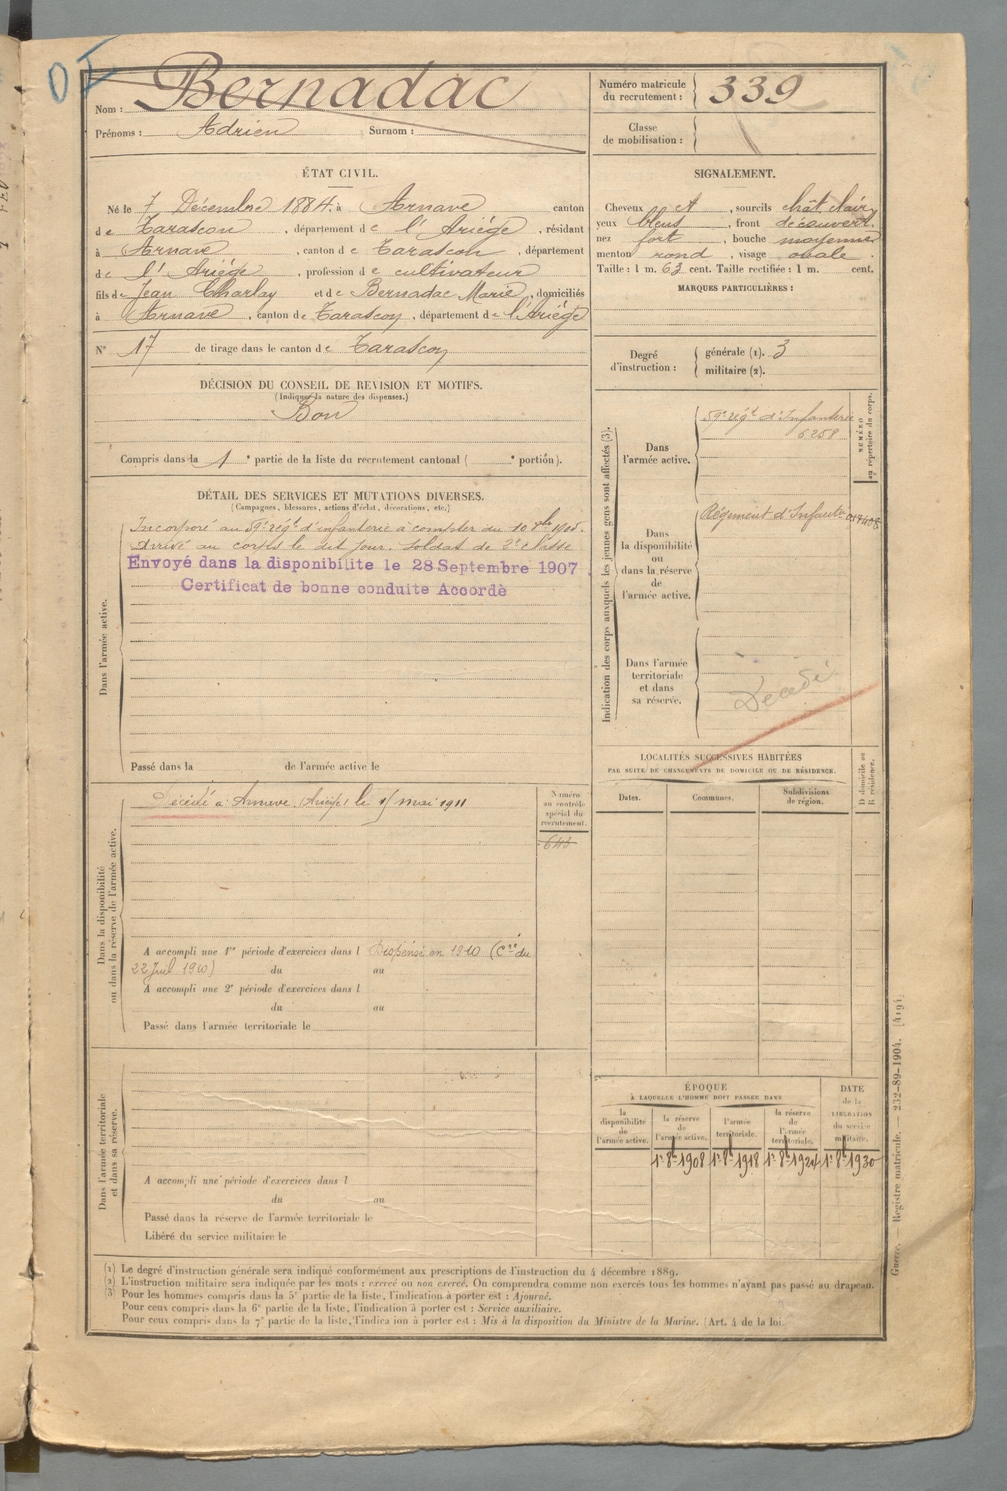 Nom : Bernadac
Prénoms : Adrien Surnom :
Numéro matricule du recrutement : 339
Classe de mobilisation :
ÉTAT CIVIL.
Né le 7 Décembre 1884. à Arnave canton
de Tarascon, département de l'Ariége, résidant
à Arnave, canton de Tarascon, département
de l'Ariége, profession de cultivateur
fils de Jean Charlay et de Bernadac Marie, domiciliés
à Arnave, canton de Tarascon, département de l'Ariége
N° 17 de tirage dans le canton de Tarascon
SIGNALEMENT.
Cheveux et, sourcils chât clair
yeux bleus, front découvert.
nez fort, bouche moyenne
menton rond, visage ovale.
Taille : 1 m. 63 cent. Taille rectifiée : 1 m. cent.
MARQUES PARTICULIÈRES :
Degré d'instruction : générale (1). 3
militaire (2).
DÉCISION DU CONSEIL DE REVISION ET MOTIFS.
(Indiquer la nature des dispenses.)
Bon
Compris dans la 1e partie de la liste du recrutement cantonal ( e portion).
DÉTAIL DES SERVICES ET MUTATIONS DIVERSES.
(Campagnes, blessures, actions d'éclat, décorations, etc.)
Dans l'armée active.
Incorporé au 59e régt d'infanterie à compter du 10 8bre 1905.
Arrivé au corps le dit jour. Soldat de 2e classe
Envoyé dans la disponibilite le 28 Septembre 1907
Certificat de bonne conduite Accordè
Passé dans la de l'armée active le
Indication des corps auxquels les jeunes gens sont affectés (3).
NUMÉRO au répertoire du corps.
Dans l'armée active.
59e régt d'Infanterie
6258
Dans la disponibilité ou dans la réserve de l'armée active.
Régiment d'Infantie
Dans l'armée territoriale et dans sa réserve.
Décédé
LOCALITÉS SUCCESSIVES HABITÉES
PAR SUITE DE CHANGEMENTS DE DOMICILE OU DE RÉSIDENCE.
D domicile ou R résidence.
Dates. Communes. Subdivisions de région.
Dans la disponibilité ou dans la réserve de l'armée active.
Numéro au contrôle spécial du recrutement.
Décédé à Arnave (Ariège) le 15 mai 1911
A accompli une 1re période d'exercices dans l Dispensé en 1910 (Cre du
22 Juil 1910) du au
A accompli une 2e période d'exercices dans l
du au
Passé dans l'armée territoriale le
Dans l'armée territoriale et dans sa réserve.
A accompli une période d'exercices dans l
du au
Passé dans la réserve de l'armée territoriale le
Libéré du service militaire le
ÉPOQUE
À LAQUELLE L'HOMME DOIT PASSER DANS
la disponibilité de l'armée active.
la réserve de l'armée active.
l'armée territoriale.
la réserve de l'armée territoriale.
DATE de la LIBÉRATION du service militaire.
1er 8bre 1908 1er 8bre 1918 1er 8bre 1924 1er 8bre 1930
(1) Le degré d'instruction générale sera indiqué conformément aux prescriptions de l'instruction du 4 décembre 1889.
(2) L'instruction militaire sera indiquée par les mots : exercé ou non exercé. On comprendra comme non exercés tous les hommes n'ayant pas passé au drapeau.
(3) Pour les hommes compris dans la 5e partie de la liste, l'indication à porter est : Ajourné.
Pour ceux compris dans la 6e partie de la liste, l'indication à porter est : Service auxiliaire.
Pour ceux compris dans la 7e partie de la liste, l'indica ion à porter est : Mis à la disposition du Ministre de la Marine. (Art. 4 de la loi.
Guerre. — Registre matricule. — 232-89-1904. [419].